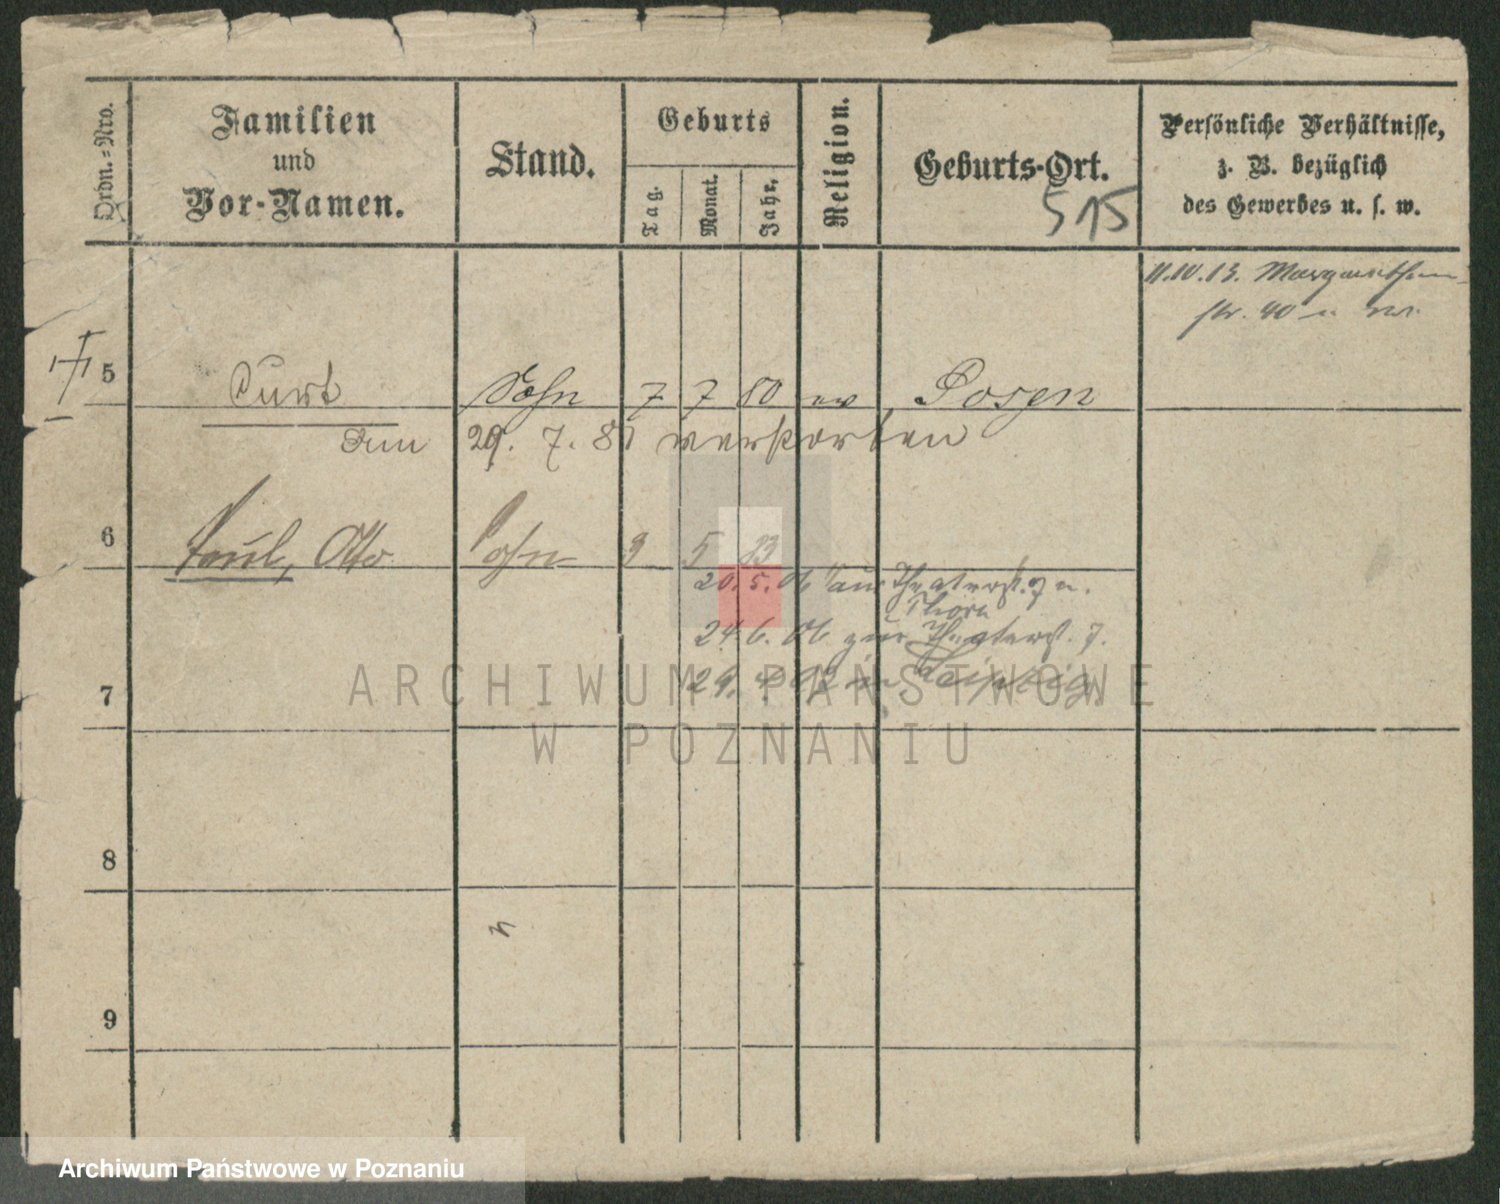 Ordn.-Nro.
Familien
und
Vor-Namen.
Stand.
Geburts
Tag.
Monat.
Jahr.
Religion.
Geburts-Ort.
515
Persönliche Verhältnisse,
z. B. bezüglich
des Gewerbes u. s. w.
11.10.13. Margarethen-
str. 40
5 Curt Sohn 7 7 80 ev Posen
29. 7. 81 verstorben
6 Paul, Otto Sohn 9 5 83
20. 5. 06 aus Theaterst. 7 n.
Thorn
24. 6. 06 zur Theaterst. 7.
7 29. Leipzig
8
9
ARCHIWUM PAŃSTWOWE
W POZNANIU
Archiwum Państwowe w Poznaniu